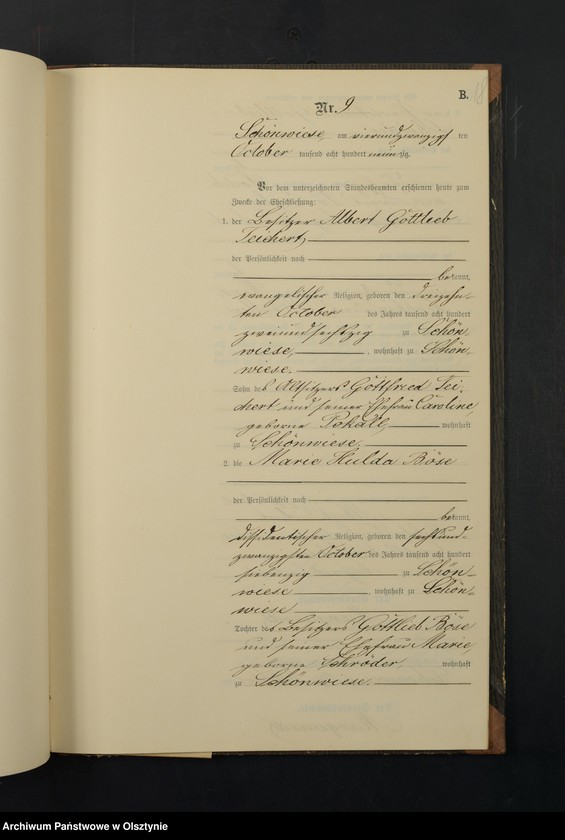 B.
Nr. 9
Schönwiese am vierundzwanzigsten
October tausend acht hundert neunzig.
Vor dem unterzeichneten Standesbeamten erschienen heute zum
Zwecke der Eheschließung:
1. der Besitzer Albert Gottlieb
Teichert,
der Persönlichkeit nach
bekannt,
evangelischer Religion, geboren den dreizehn-
ten October des Jahres tausend acht hundert
zweiundsechszig zu Schön
wiese, wohnhaft zu Schön
wiese.
Sohn des Altsitzers Gottfried Tei-
chert und seiner Ehefrau Caroline,
geborne wohnhaft
zu Schönwiese.
2. die Marie Hulda Böse
der Persönlichkeit nach
bekannt,
dissidentischer Religion, geboren den sechsund-
zwanzigsten October des Jahres tausend acht hundert
siebenzig zu Schön-
wiese, wohnhaft zu Schön-
wiese
Tochter des Besitzers Gottlieb Böse
und seiner Ehefrau Marie,
geborne Schröder, wohnhaft
zu Schönwiese.
Archiwum Państwowe w Olsztynie